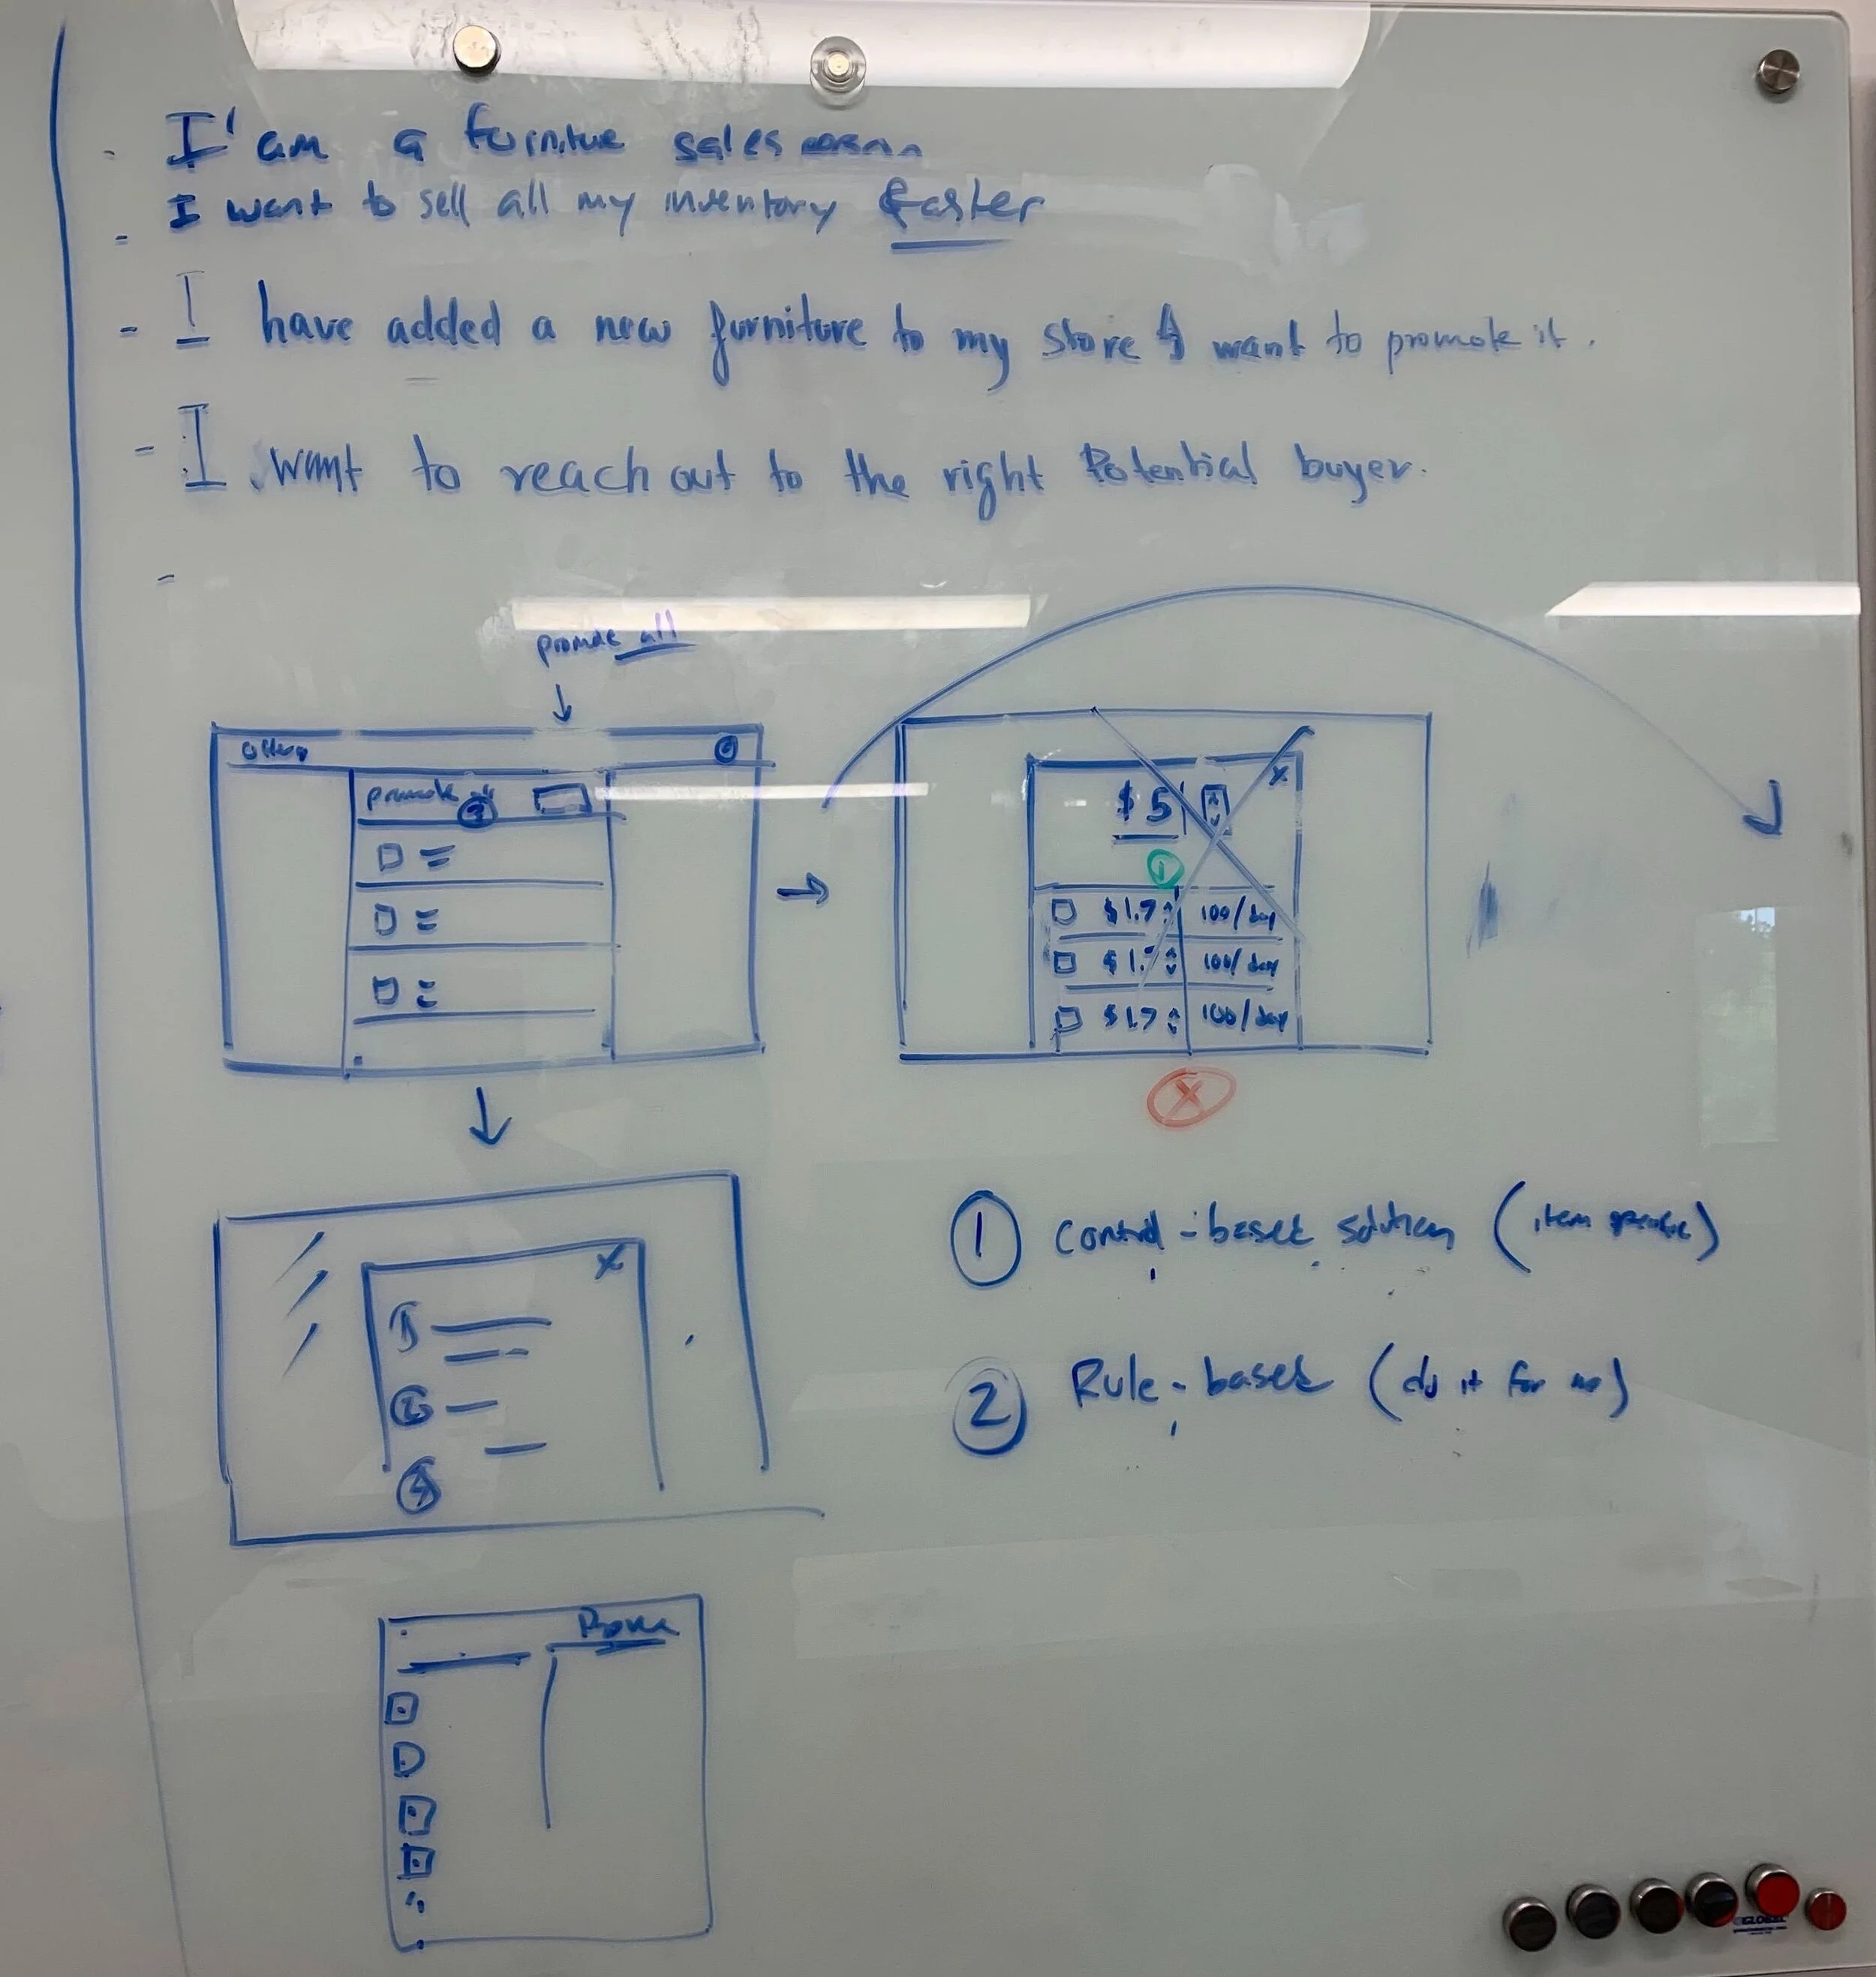 - I' am a furniture sales
- I want to sell all my inventory faster
- I have added a new furniture to my store & want to promote it.
- I want to reach out to the right Potential buyer.
-
promote all
promote
$5
x
1
$1.7 100/day
$1.7 100/day
$1.7 100/day
X
x
1
2
1 Control-based solution (item specific)
2 Rule-based (do it for me)
GLOBAL